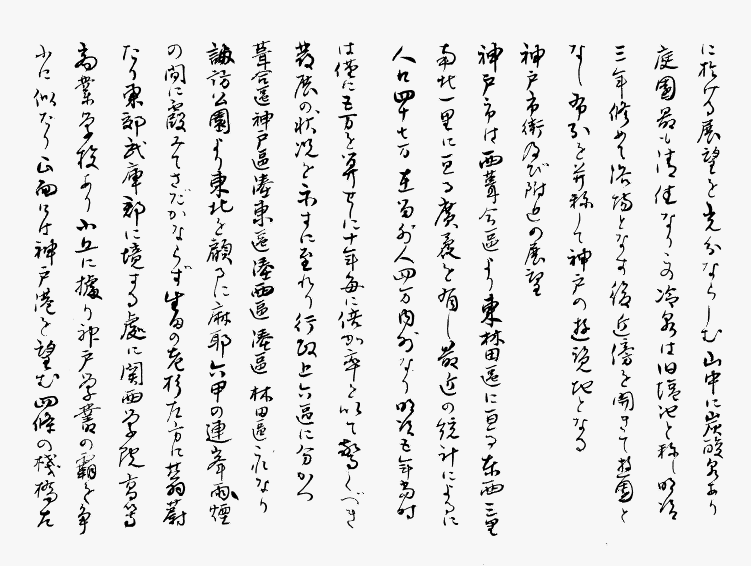 に於ける展望を充分ならしむ山中に炭酸泉あり
庭園最も清佳なり又冷泉は旧塩池と称し明治
三年修めて浴場となす後近傍を開きて遊園と
なし布引を并称して神戸の遊覧地となる
神戸市街及び附近の展望
神戸市は西葺合區より東林田區に亘る東西三里
南北一里に亘る廣袤を有し最近の統計によるに
人口四十七万在留外人四万内外なり明治五年當時
は僅に五万を算せしに十年毎に倍加率を以て驚くべき
發展の状况を示すに至れり行政上六區に分かつ
葺合區神戸區湊東區湊西區湊區林田區之れなり
諏訪公園より東北を顧るに麻耶六甲の連峯雨煙
の間に霞みてさだかならず生田の老杉左方に蓊蔚
たり東郊武庫郡に境する處に関西学院高等
商業学校あり小丘に據り神戸学書の覇を争
ふに似たり正面には神戸港を望む四條の棧橋左